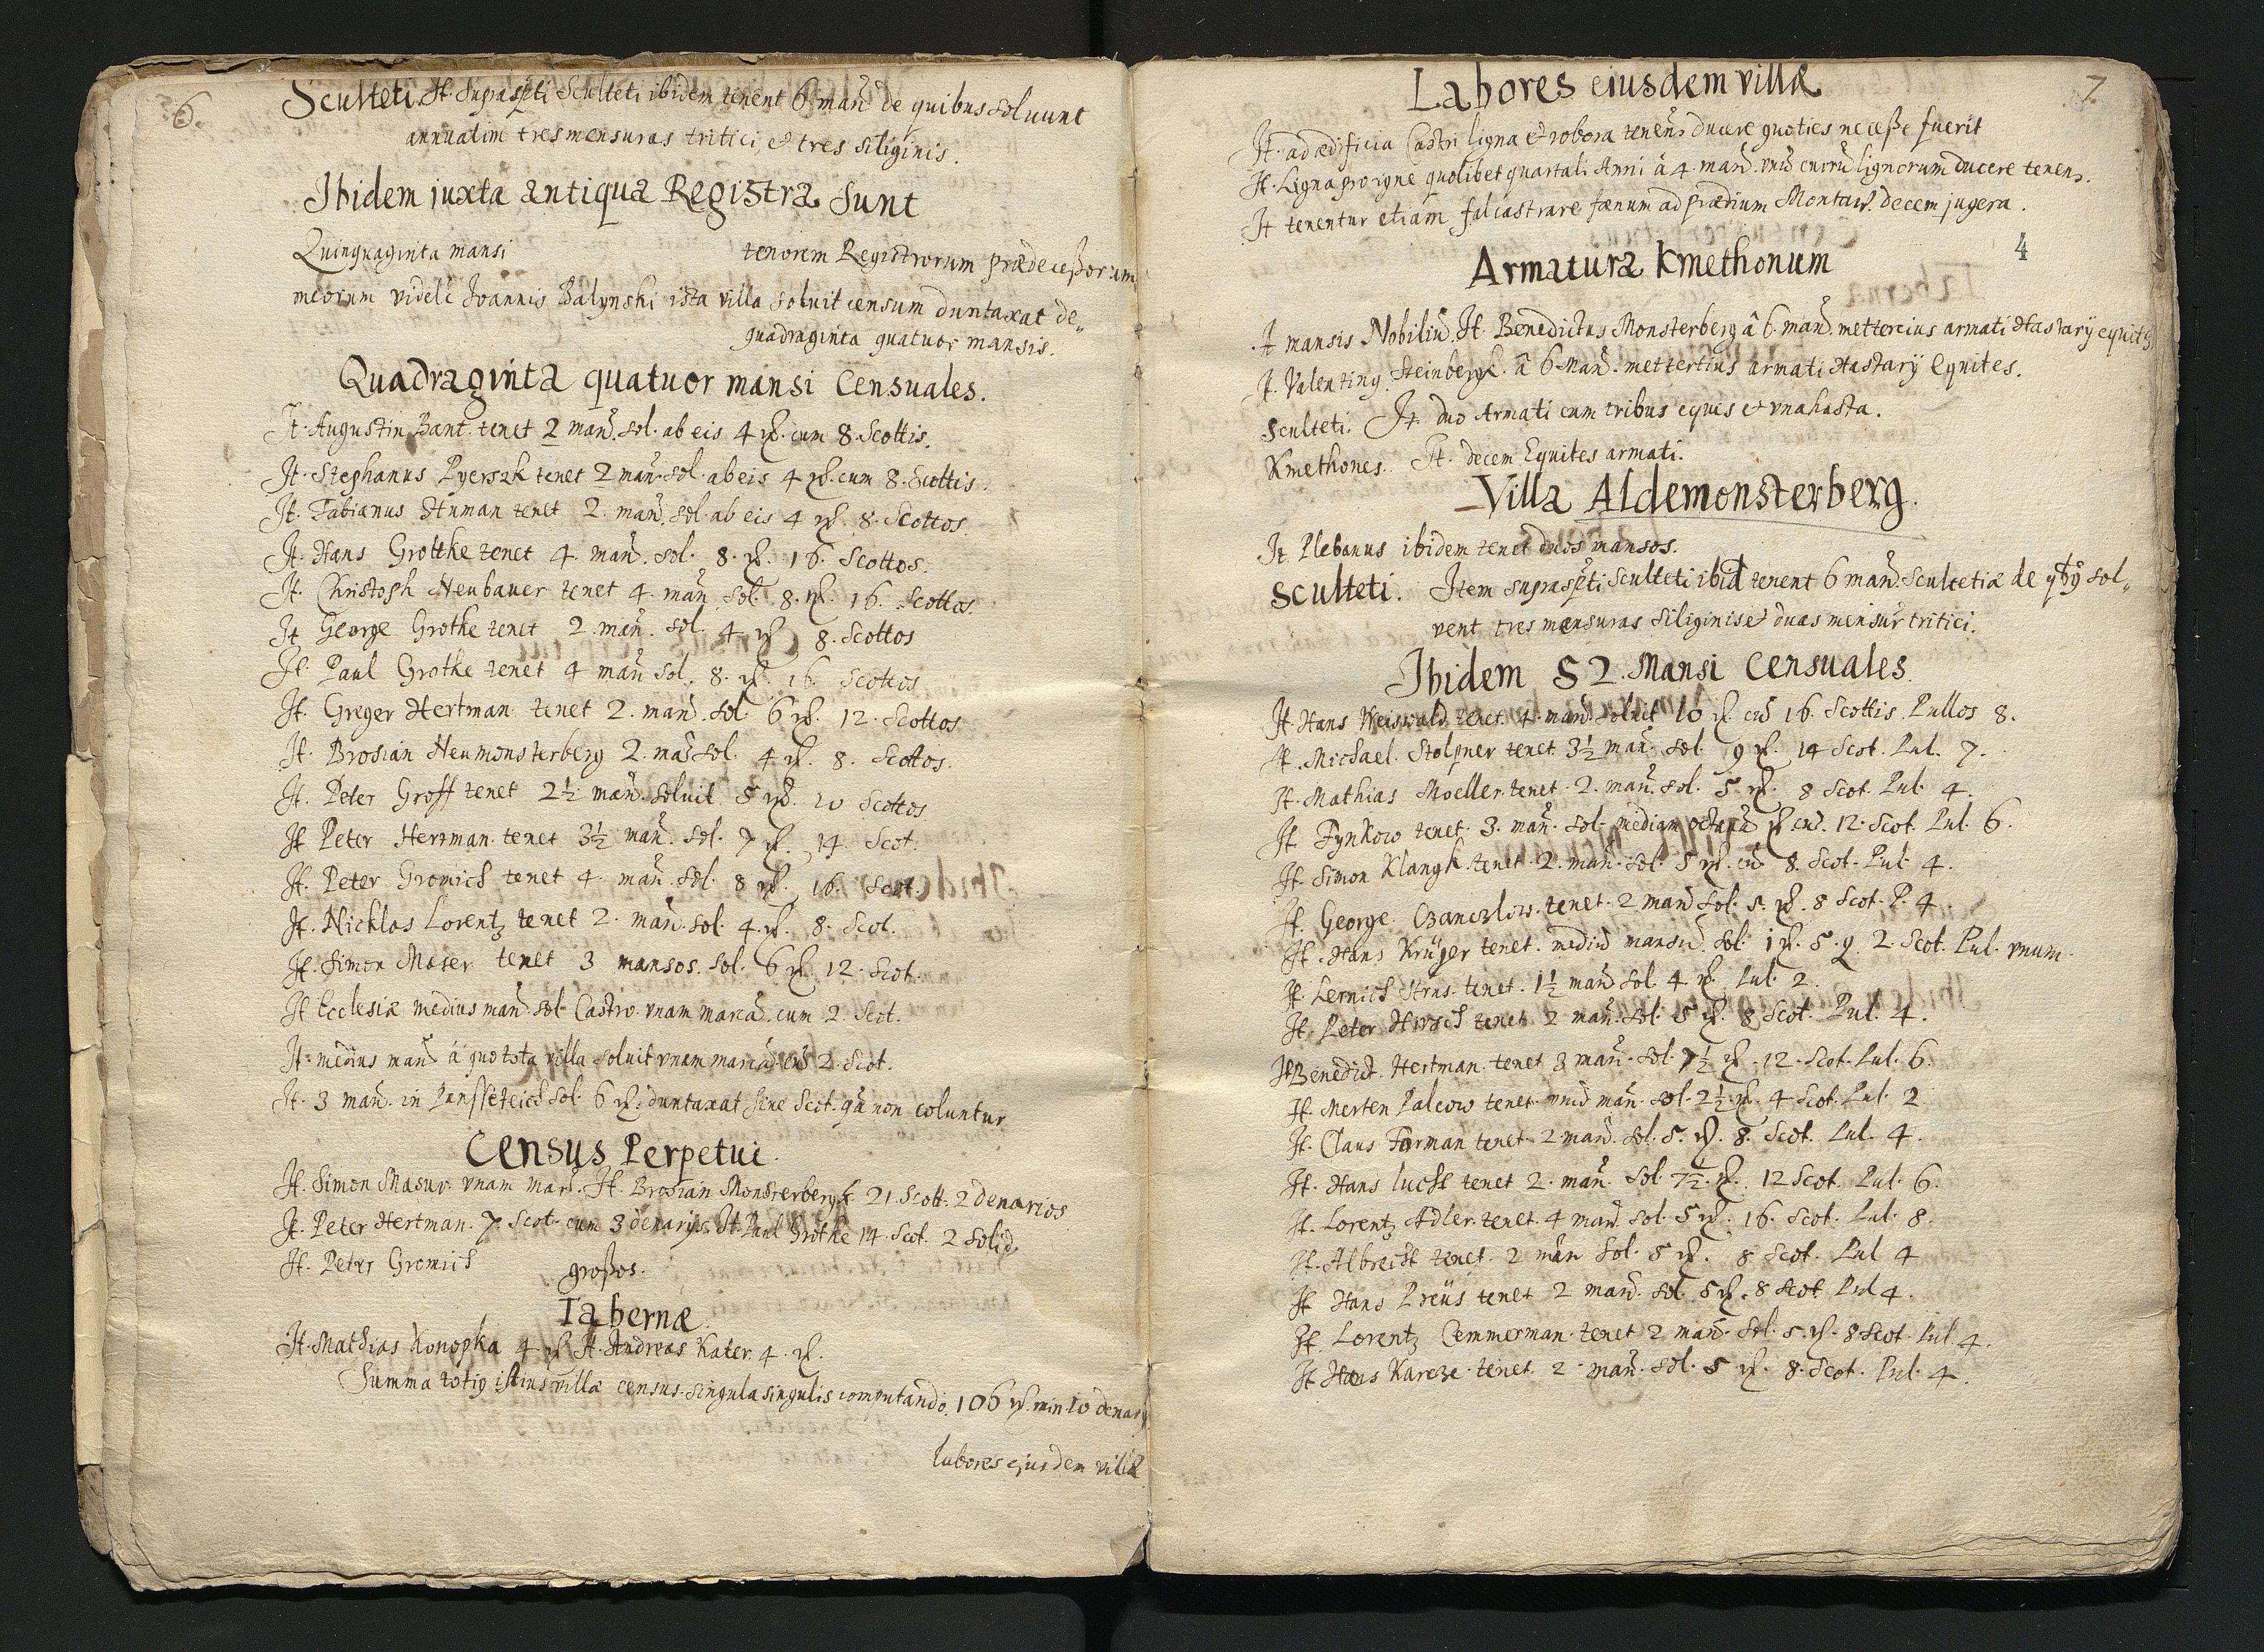 6.
Sculteti. It. Suprascpti Sculteti ibidem tenent 6 man̄ de quibus soluunt
annuatim tres mensuras tritici, et tres siliginis.
Ibidem juxta antiqua Registra sunt
Quinquaginta mansi tenorem Registrorum prædecessorum
meorum videlc Joannis Balynski ista villa soluit censum duntaxat de„
quadraginta quatuor mansis.
Quadraginta quatuor mansi Censuales.
It. Augustin Bant. tenet 2 man̄. sol. ab eis 4 mꝶ. cum 8. Scottis.
It. Stephanus Pyerszk tenet 2 man̄. sol. ab eis 4 mꝶ. cum 8. Scottis.
It. Fabianus Human tenet 2. man̄. sol ab eis 4 mꝶ. 8. Scottos.
It. Hans Grottke tenet 4. man̄. sol. 8. mꝶ. 16. Scottos.
It. Christoph Neubauer tenet 4. man̄ sol. 8. mꝶ. 16. Scottos.
It George Grothe tenet 2. man̄. sol. 4 mꝶ 8. Scottos
It. Paul Grothe tenet 4 man̄ sol. 8. mꝶ. 16 Scottos
It. Greger Hertman tenet 2. man̄. sol 6 mꝶ. 12. Scottos
It. Brosian Neumonsterberg 2. man̄ sol. 4 mꝶ. 8. Scottos.
It. Peter Groff tenet 2½ man̄. soluit 5 mꝶ. 10 Scottos
It Peter Hertman. tenet 3½ man̄. sol. 7 mꝶ. 14. Scot.
It. Peter Gromich tenet 4 man̄. sol. 8 mꝶ. 16. Scot.
It. Nicklas Lorentz tenet 2. man̄. sol. 4. mꝶ. 8. Scot.
It. Simon Maser tenet 3 mansos. sol. 6 mꝶ 12. Scot.
It Ecclesiæ medius man̄. sol. Castro unam marcā. cum 2. Scot.
It. medius man̄ á quo tota villa soluit vnam marcā. cū 2. Scot.
It. 3 man̄. in sol. 6 mꝶ. duntaxat sine Scot. qā non coluntur
Census Perpetui.
It. Simon Masur. vnam mar̄. It. Brosian Monsterbergk 21. Scott. 2 denarios
It. Peter Hertman. 7. Scot. cum 3 denarijs. It. Paul Grothe 14. Scot. 2 Solid.
It. Peter Gromich grossos.
Tabernæ.
It. Mathias Konopka 4 mꝶ It. Andreas Kater. 4. mꝶ.
Summa totiꝰ istius villæ census. singula singulis computando. 106 mꝶ. min. 10 denarij
Labores ejusdem villæ
7.
Labores eiusdem villæ
It. ad ædificia Castri ligna et robora tenenr̄ ducere quoties necesse fuerit
It. Ligna pro igne quolibet quartali Anni à 4. man̄. vnū currū lignorum ducere tenenr̄.
It tenentur etiam falcastrare fænum ad prædium Montaw. decem jugera.
4
Armatura Kmethonum
A mansis Nobiliū. It. Benedictus Monsterberg â 6. man̄. mettercius armati Hastarÿ equites
It. Valentinꝰ Steinbergk. â 6 Man̄. mettertius armati Hastarÿ Equites.
Sculteti. It. duo Armati cum tribus equis et vna hasta.
Kmethones. It. decem Equites armati.
Villa Aldemonsterberg.
It. Plebanus ibidem tenet duos mansos.
Sculteti. Item suprascpti Sculteti ibid tenent 6 man̄. Scultetiæ de qbꝰ sol„
vent tres mensuras siliginis et duas mensur̄ tritici.
Ibidem 52. Mansi Censuales.
It. Hans Weiswald tenet. 4. man̄. soluit 10 mꝶ. cū 16. Scottis. Pullos 8.
It. Michael. Stolpner tenet 3½ man̄. sol. 9 mꝶ. 14 Scot. Pul. 7.
It. Mathias Moeller. tenet. 2. man̄. sol. 5. mꝶ. 8 Scot. Pul. 4.
It. Fynkow tenet. 3. man̄. sol. mediam octavā mꝶ cū. 12. Scot. Pul. 6.
It. Simon Klangk. tenet. 2. man̄. sol. 5 mꝶ. cū 8. Scot. Pul. 4.
It. George. Czanczlow. tenet. 2 man̄ sol. 5. mꝶ. 8 Scot. P. 4
It. Hans Krüger tenet. mediū mansū. sol. 1 mꝶ. 5. q. 2. Scot. Pul. vnum.
It. Lernich Strus. tenet. 1½ man̄ sol. 4 mꝶ. Pul. 2.
It. Peter Hirsch tenet 2 man̄. sol. 5 mꝶ. 8 Scot. Pul. 4.
It Benedict. Hertman. tenet 3 man̄. sol. 7½ mꝶ. 12. Scot. Pul. 6.
It. Merten Palcow tenet. vnū man̄. sol. 2½. mꝶ. 4 Scot. Pul. 2
It. Claus Forman tenet. 2. man̄. sol. 5. mꝶ. 8. Scot. Pul. 4.
It. Hans lucht tenet 2. man̄. sol. 7½. mꝶ. 12 Scot. Pul. 6.
It. Lorentz Adler. tenet. 4 man̄. sol. 5 mꝶ. 16. Scot. Pul. 8.
It. Albrecht tenet. 2 man̄ sol. 5 mꝶ. 8 Scot. Pul 4
It Hans Preüs tenet 2 man̄. sol. 5 mꝶ. 8 Scot. Pul 4.
It. Lorentz Cemmerman. tenet 2 man̄. sol. 5. mꝶ. 8 Scot. Pul. 4.
It Hans Karcze. tenet. 2. man̄. sol. 5 mꝶ. 8. Scot. Pul. 4.